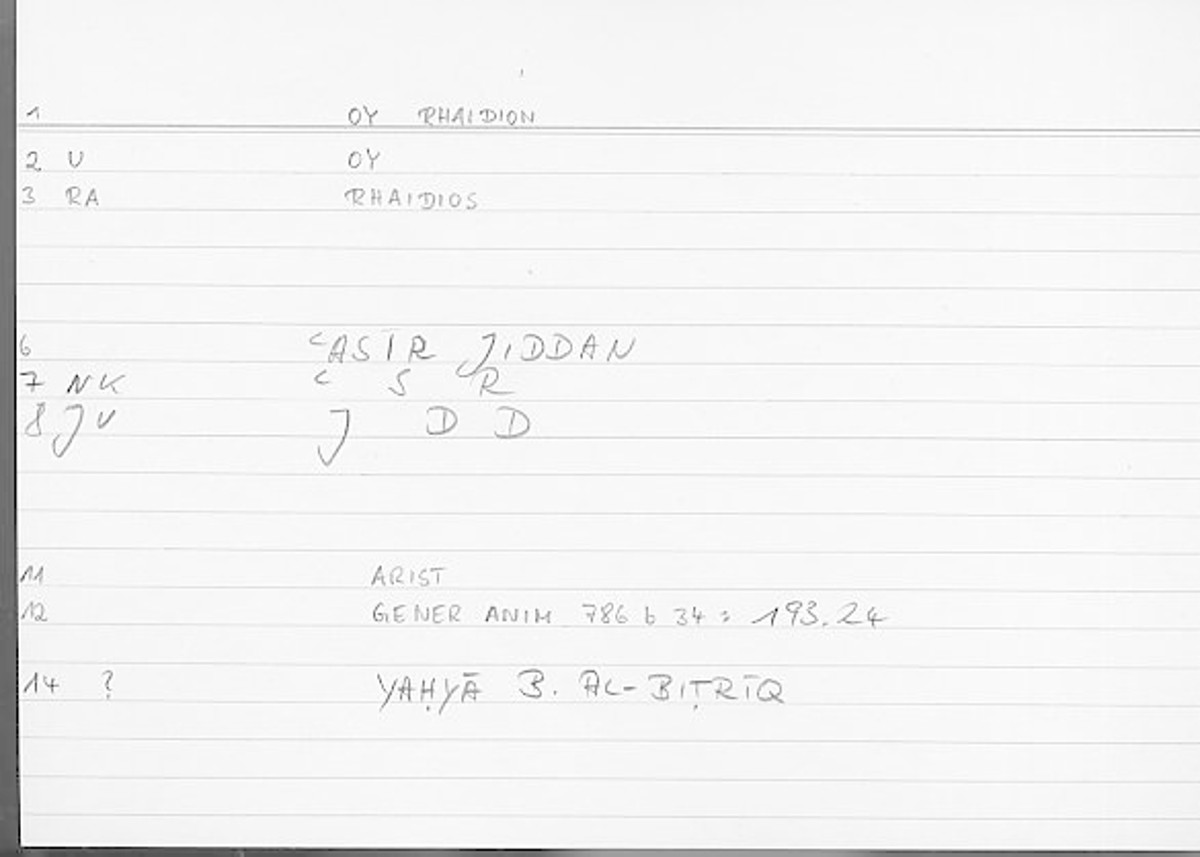 1 OY RHAIDION
2 U OY
3 RA RHAIDIOS
6 ʿASIR JIDDAN
7 NK ʿ S R
8 JU J D D
11 ARIST
12 GENER ANIM 786 b 34 : 193.24
14 ? YAḤYĀ B. AL-BIṬRĪQ